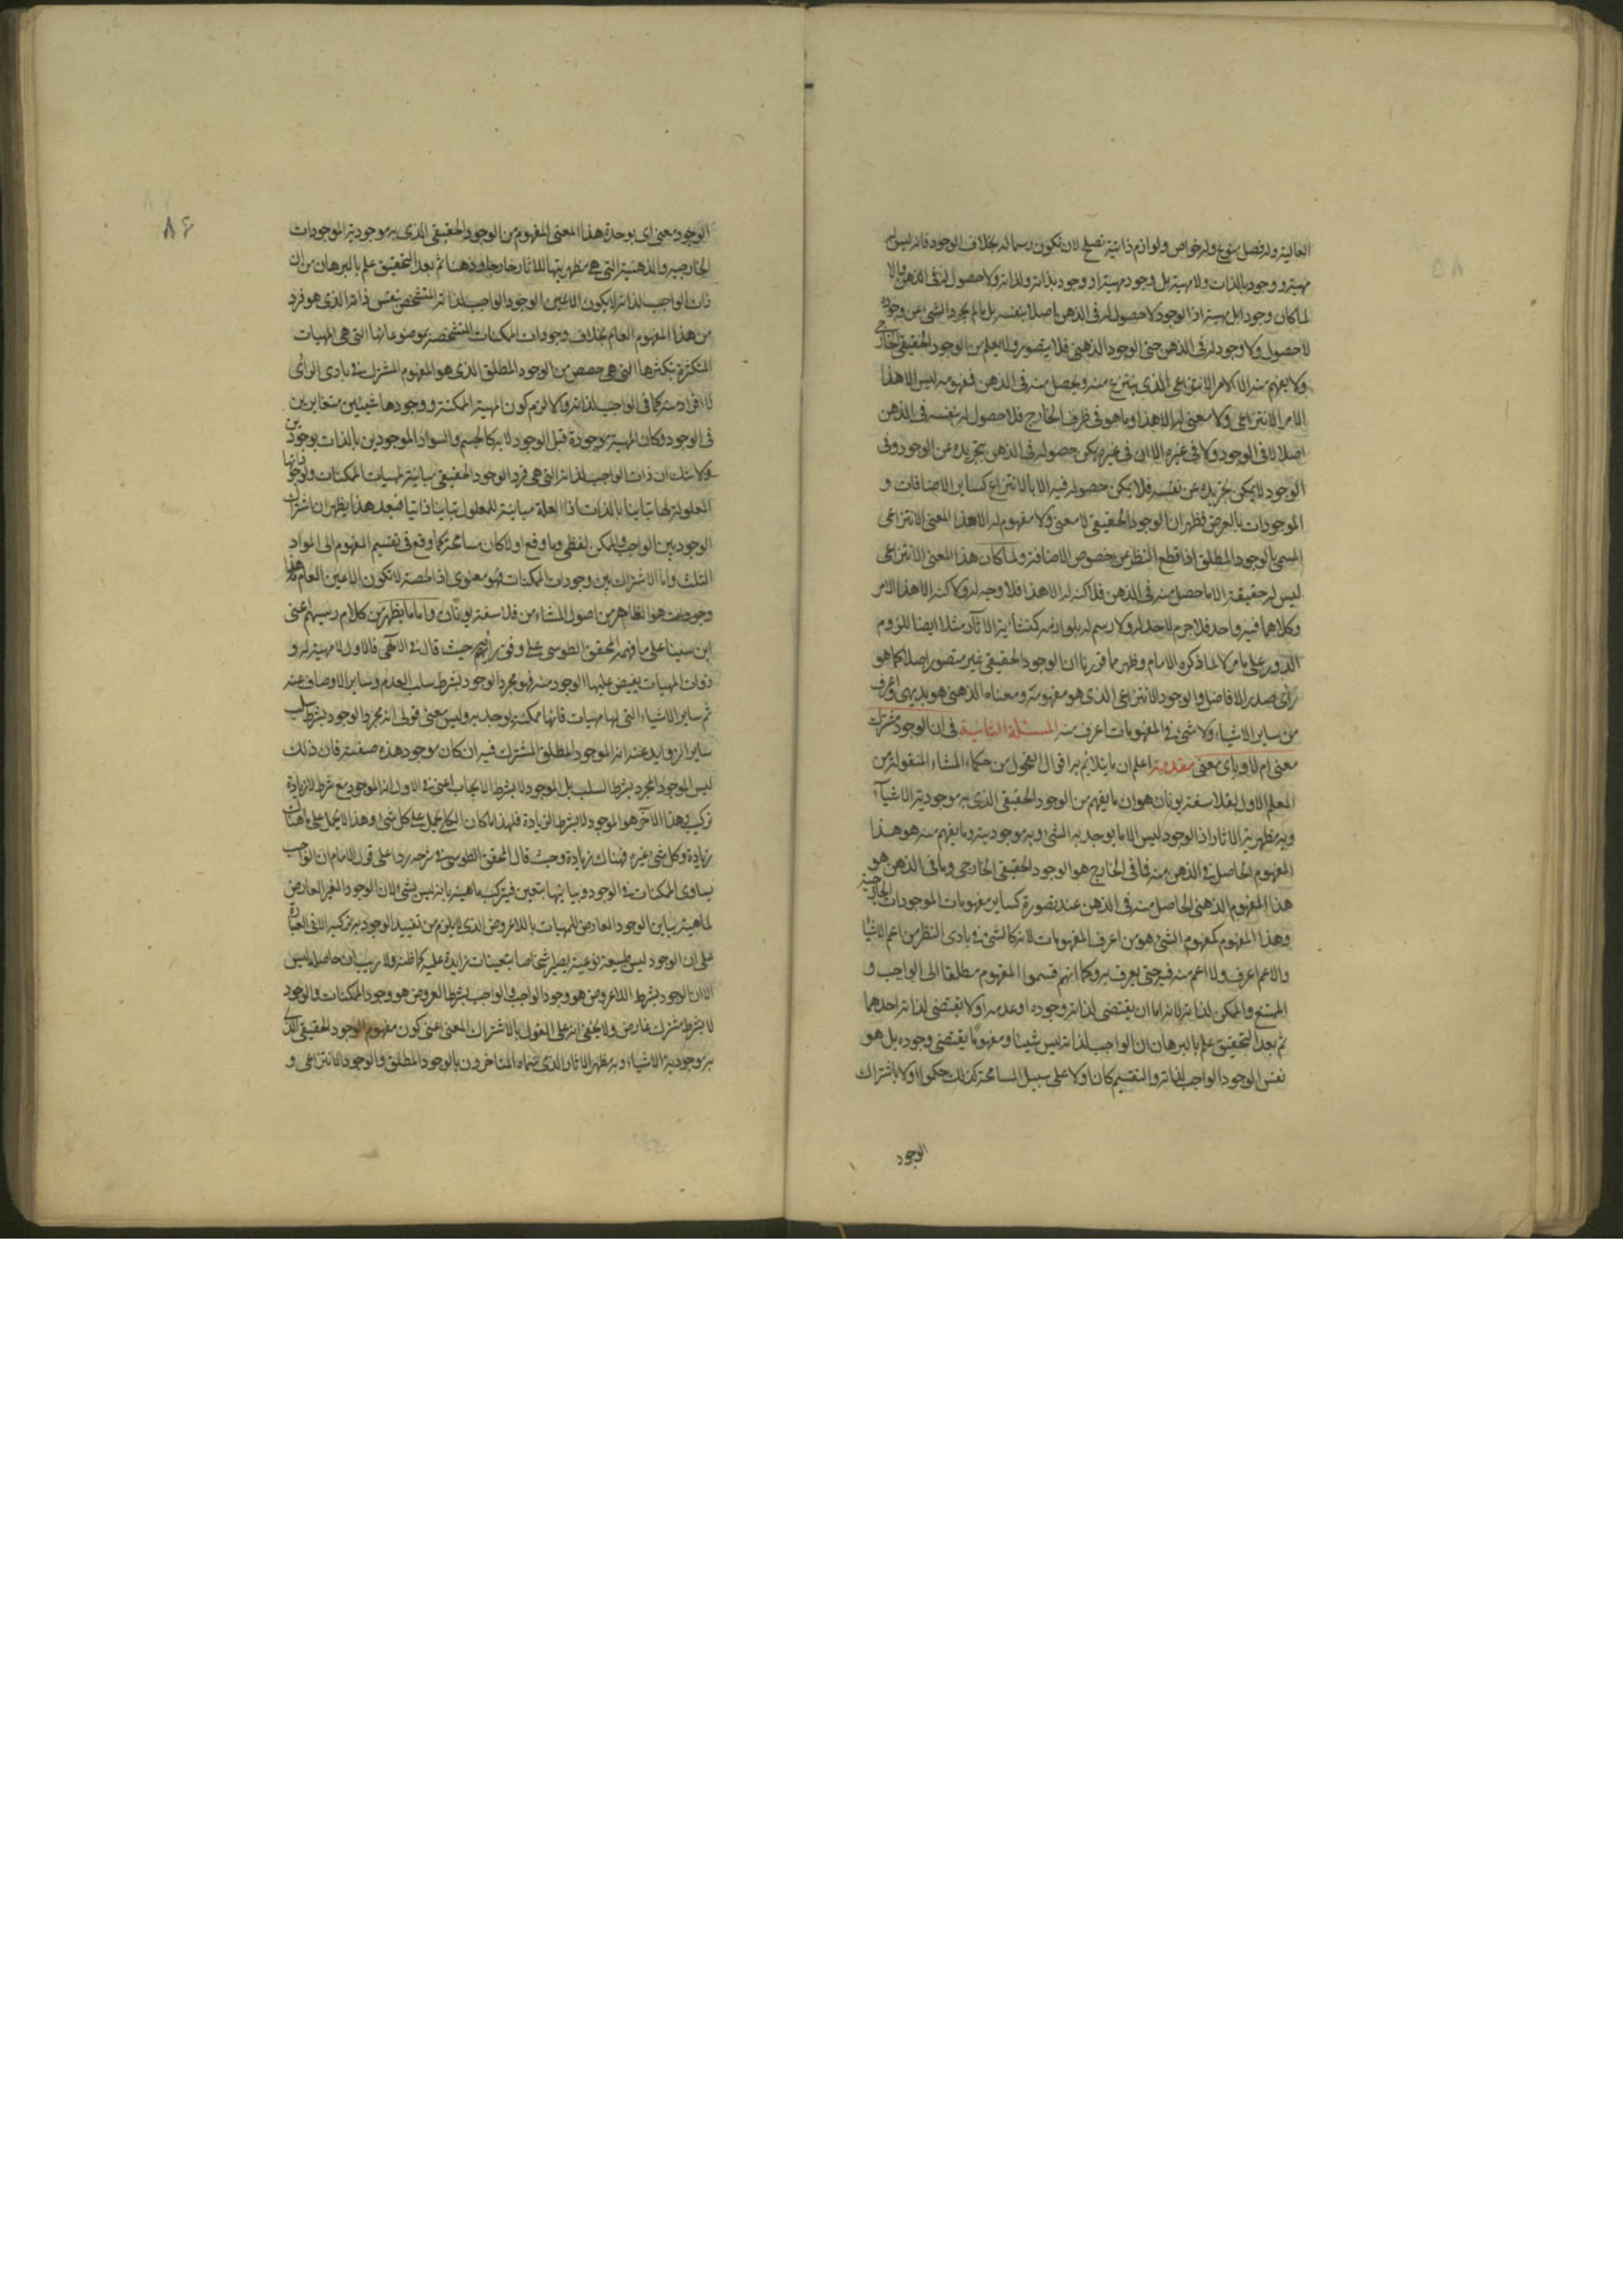 العالية وله فصل منوع وله خواص ولوازم ذاتية تصلح لان تكون رسما له بخلاف الوجود فانه ليس له
مهية ووجود بالذات ولا مهية بل وجود مهية او وجود بذاته ولذاته ولا حصول له في الذهن والا
لما كان وجودا بل مهية اذ الوجود لا حصول له في الذهن اصلا بنفسه بل ما لم يجرد الشئ عن وجوده
لا حصول ولا وجود له في الذهن حتى الوجود الذهني فلا يتصور ولا يعلم من الوجود الحقيقي الخارجي
ولا يفهم منه الا الامر الانتزاعي الذي ينتزع منه ويحصل منه في الذهن فمفهومه ليس الا هذا
الامر الانتزاعي ولا معنى له الا هذا وما هو في ظرف الخارج فلا حصول له بنفسه في الذهن
اصلا لا في الوجود ولا في غيره الا ان في غيره يمكن حصوله في الذهن بتجريده عن الوجود وفي
الوجود لا يمكن تجريده عن نفسه فلا يمكن حصوله فيه الا بالانتزاع كساير الاضافات و
الموجودات بالعرض فظهر ان الوجود الحقيقي لا معنى ولا مفهوم له الا هذا المعنى الانتزاعي
المسمى بالوجود المطلق اذا قطع النظر عن خصوص الاضافة ولما كان هذا المعنى الانتزاعي
ليس له حقيقة الا ما حصل منه في الذهن فلا كنه له الا هذا فلا وجه له ولا كنه الا هذا الامر
وكلاهما فيه واحد فلا جرم لا حد له ولا رسم له بلوازمه كمنشأية الآثار مثلا ايضا للزوم
الدور على ما مر لا لما ذكره الامام وظهر مما قررنا ان الوجود الحقيقي غير متصور اصلا كما هو
رأى صدر الافاضل والوجود الانتزاعي الذي هو مفهومه ومعناه الذهني هو بديهي واعرف
من ساير الاشياء ولا شئ في المفهومات اعرف منه المسئلة الثانية في ان الوجود مشترك
معنى ام لا وباى معنى مقدمة اعلم ان ما يتلايم به اقوال الفحول من حكماء المشاء المنقولة من
المعلم الاول لفلاسفة يونان هو ان ما يفهم من الوجود الحقيقي الذي به موجودية الاشياء
وبه مظهرية الاثار اذ الوجود ليس الا ما يوجد به الشئ وبه موجوديته وما يفهم منه هو هذا
المفهوم الحاصل في الذهن منه فما في الخارج هو الوجود الحقيقي الخارجي وما في الذهن هو
هذا المفهوم الذهني الحاصل منه في الذهن عند تصوره كساير مفهومات الموجودات الخارجية
وهذا المفهوم كمفهوم الشئ هو من اعرف المفهومات لانه كالشئ في بادى النظر من اعم الاشياء
والاعم اعرف ولا اعم منه فيه حتى يعرف به وكما انهم قسموا المفهوم مطلقا الى الواجب و
الممتنع والممكن لذاته لانه اما ان يقتضي لذاته وجوده او عدمه او لا يقتضي لذاته احدهما
ثم بعد التحقيق علم بالبرهان ان الواجب لذاته ليس شيئا ومفهوما يقتضي وجوده بل هو
نفس الوجود الواجب لذاته والتقسيم كان اولا على سبيل المسامحة كذلك حكموا اولا باشتراك
الوجود
٨٦
الوجود معنى اى بوحدة هذا المعنى المفهوم من الوجود الحقيقي الذي به موجودية الموجودات
الخارجية والذهنية التي هي مظهريتها للاثار خارجا وذهنا ثم بعد التحقيق علم بالبرهان من ان
ذات الواجب لذاته لا يكون الا عين الوجود الواجب لذاته المتشخص بنفس ذاته الذي هو فرد
من هذا المفهوم العام بخلاف وجودات الممكنات المتشخصة بموضوعاتها التي هي المهيات
المتكثرة بتكثرها التي هي حصص من الوجود المطلق الذي هو المفهوم المشترك في بادى الراى
لا افراد منه كما في الواجب لذاته والا لزم كون المهية الممكنة ووجودها شيئين متغايرين
في الوجود وكان المهية موجودة قبل الوجود لا به كالجسم والسواد الموجودين بالذات بوجودين
ولا شك ان ذات الواجب لذاته التي هي فرد الوجود الحقيقي مباينة لمهيات الممكنات ولوجوداتها
المعلولة لها تباينا بالذات اذ العلة مباينة للمعلول تباينا ذاتيا فبعد هذا يظهر ان اشتراك
الوجود بين الواجب والممكن لفظي وما وقع اولا كان مسامحة كما وقع في تقسيم المفهوم الى المواد
الثلث واما الاشتراك بين وجودات الممكنات فهو معنوى اذ الحصة لا تكون الا عين العام هذا
وجود هو الظاهر من اصول المشاء من فلاسفة يونان واما ما يظهر من كلام رسيهم اعنى
ابن سينا على ما فهمه المحقق الطوسي على وفق رأيهم حيث قال في الآلهي فالاول لا مهية له و
ذوات المهيات يفيض عليها الوجود منه فهو مجرد الوجود بشرط سلب العدم وساير الاوصاف عنه
ثم ساير الاشياء التي لها مهيات فانها ممكنة يوجد به وليس معنى قولى انه مجرد الوجود بشرط سلب
ساير الزوايد عنه انه الموجود المطلق المشترك فيه ان كان موجود هذه صفته فان ذلك
ليس الموجود المجرد بشرط السلب بل الموجود لا بشرط الايجاب اعنى في الاول انه الموجود مع شرط لا زيادة
تركيب وهذا الآخر هو الموجود لا بشرط الزيادة فلهذا ما كان الكلي يحمل على كل شئ وهذا لا يحمل على ما هناك
زيادة وكل شئ غيره فهناك زيادة وحيث قال المحقق الطوسي في شرحه ردا على قول الامام ان الواجب
يساوى الممكنات في الوجود ويباينها بتعين فيتركب ماهيته بانه ليس بشئ لان الوجود الغير العارض
لماهية يباين الوجود العارض للمهيات باللاعروض الذي لا يلزم من تقييد الوجود به تركيبه الا في العبارة
على ان الوجود ليس طبيعة نوعية يصير اشخاصا بتعينات زايدة عليه كما ظنه ولا ريب ان حاصله ليس
الا ان الوجود بشرط اللاعروض هو وجود الواجب والواجب بشرط العروض هو وجود الممكنات والوجود
لا بشرط مشترك عارض ولا يخفى انه على القول بالاشتراك المعنى اعنى كون مفهوم الوجود الحقيقي الذي
به موجودية الاشياء وبه مظهر الاثار الذي سماه المتاخرون بالوجود المطلق والوجود الانتزاعي و